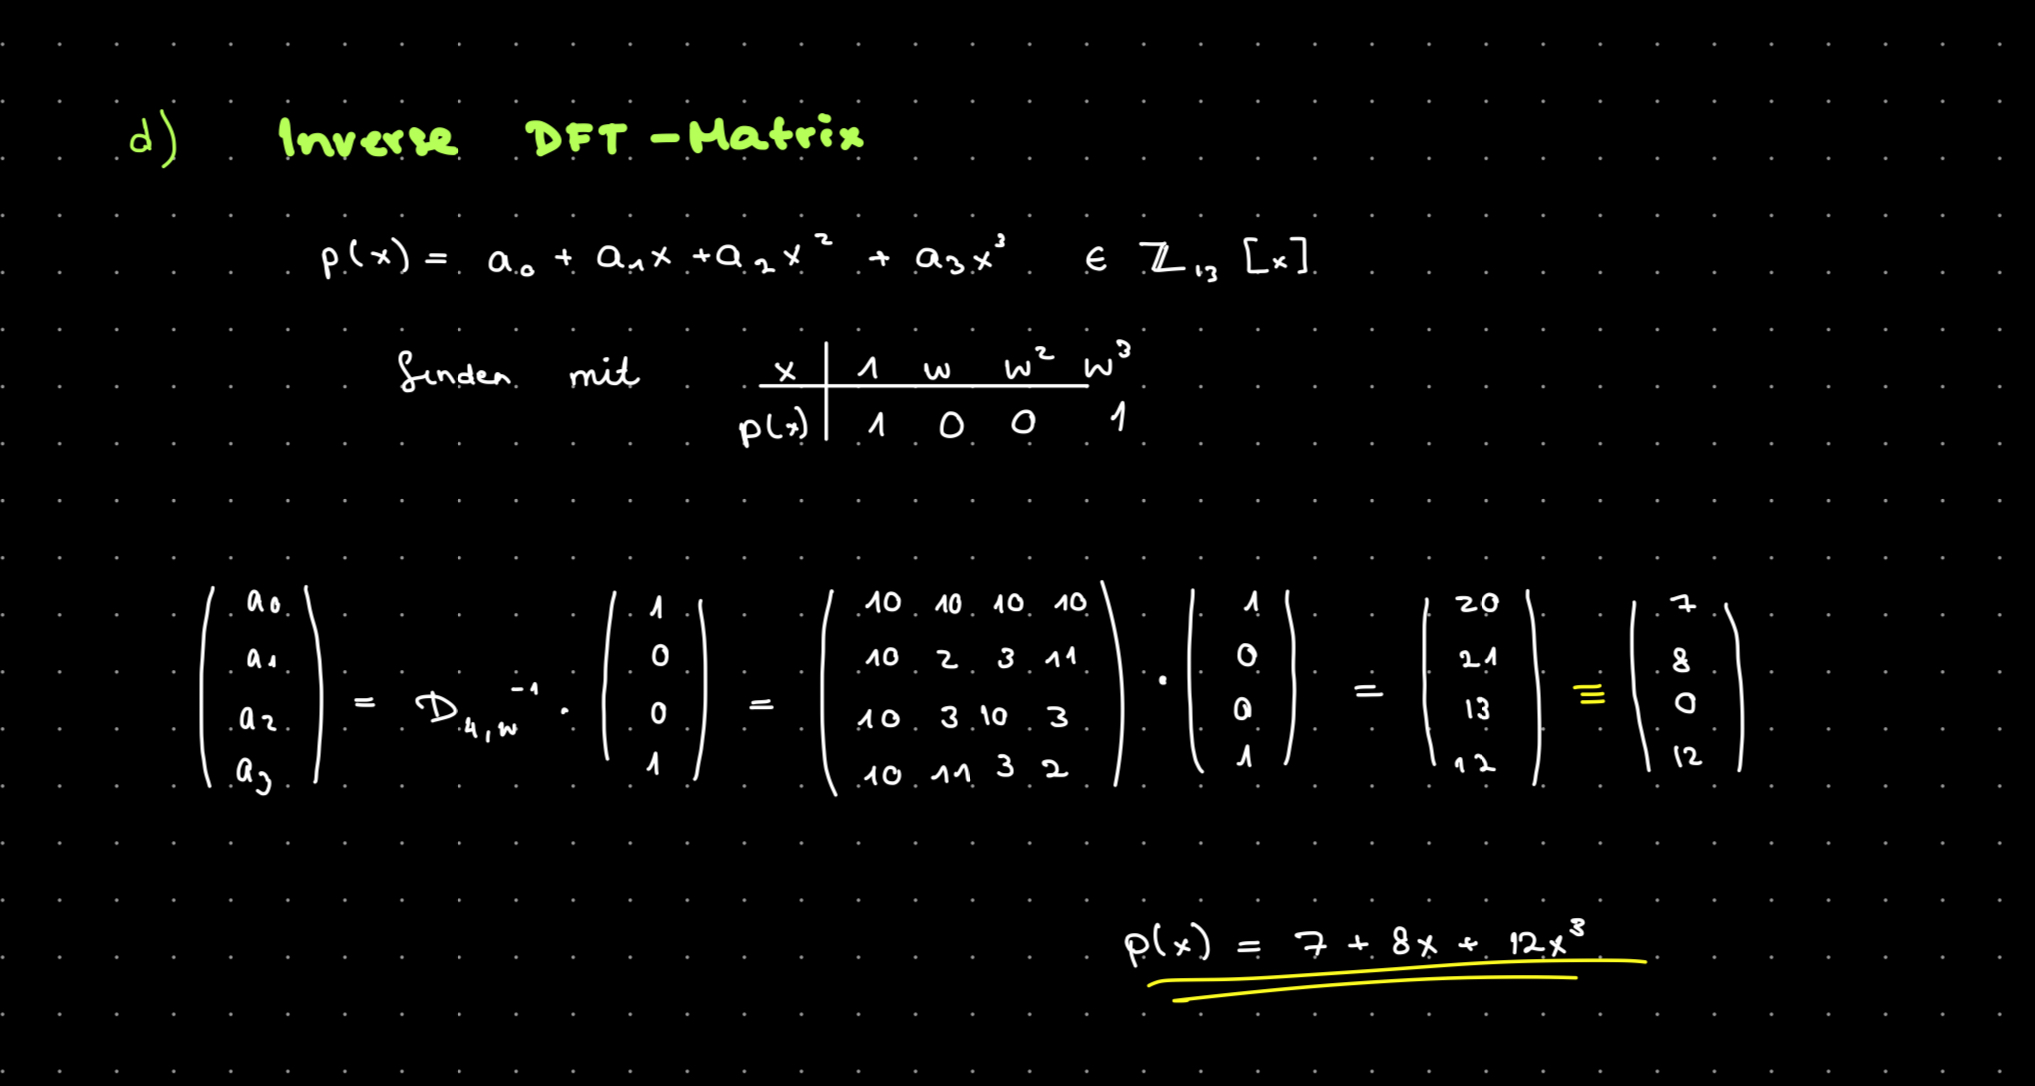 d) Inverse DFT-Matrix
p(x) = a₀ + a₁x + a₂x² + a₃x³ ∈ ℤ₁₃ [x]
finden mit
x | 1 w w² w³
p(x) | 1 0 0 1
(a₀ a₁ a₂ a₃) = D₄,w⁻¹ · (1 0 0 1) = (10 10 10 10
10 2 3 11
10 3 10 3
10 11 3 2) · (1 0 0 1) = (20 21 13 12) ≡ (7 8 0 12)
p(x) = 7 + 8x + 12x³